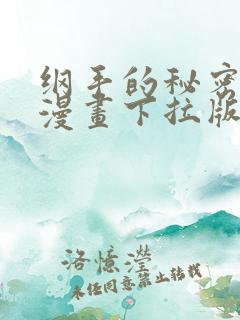 纲手的秘密
漫畫下拉版
洛憶瀅
未经同意禁止转载